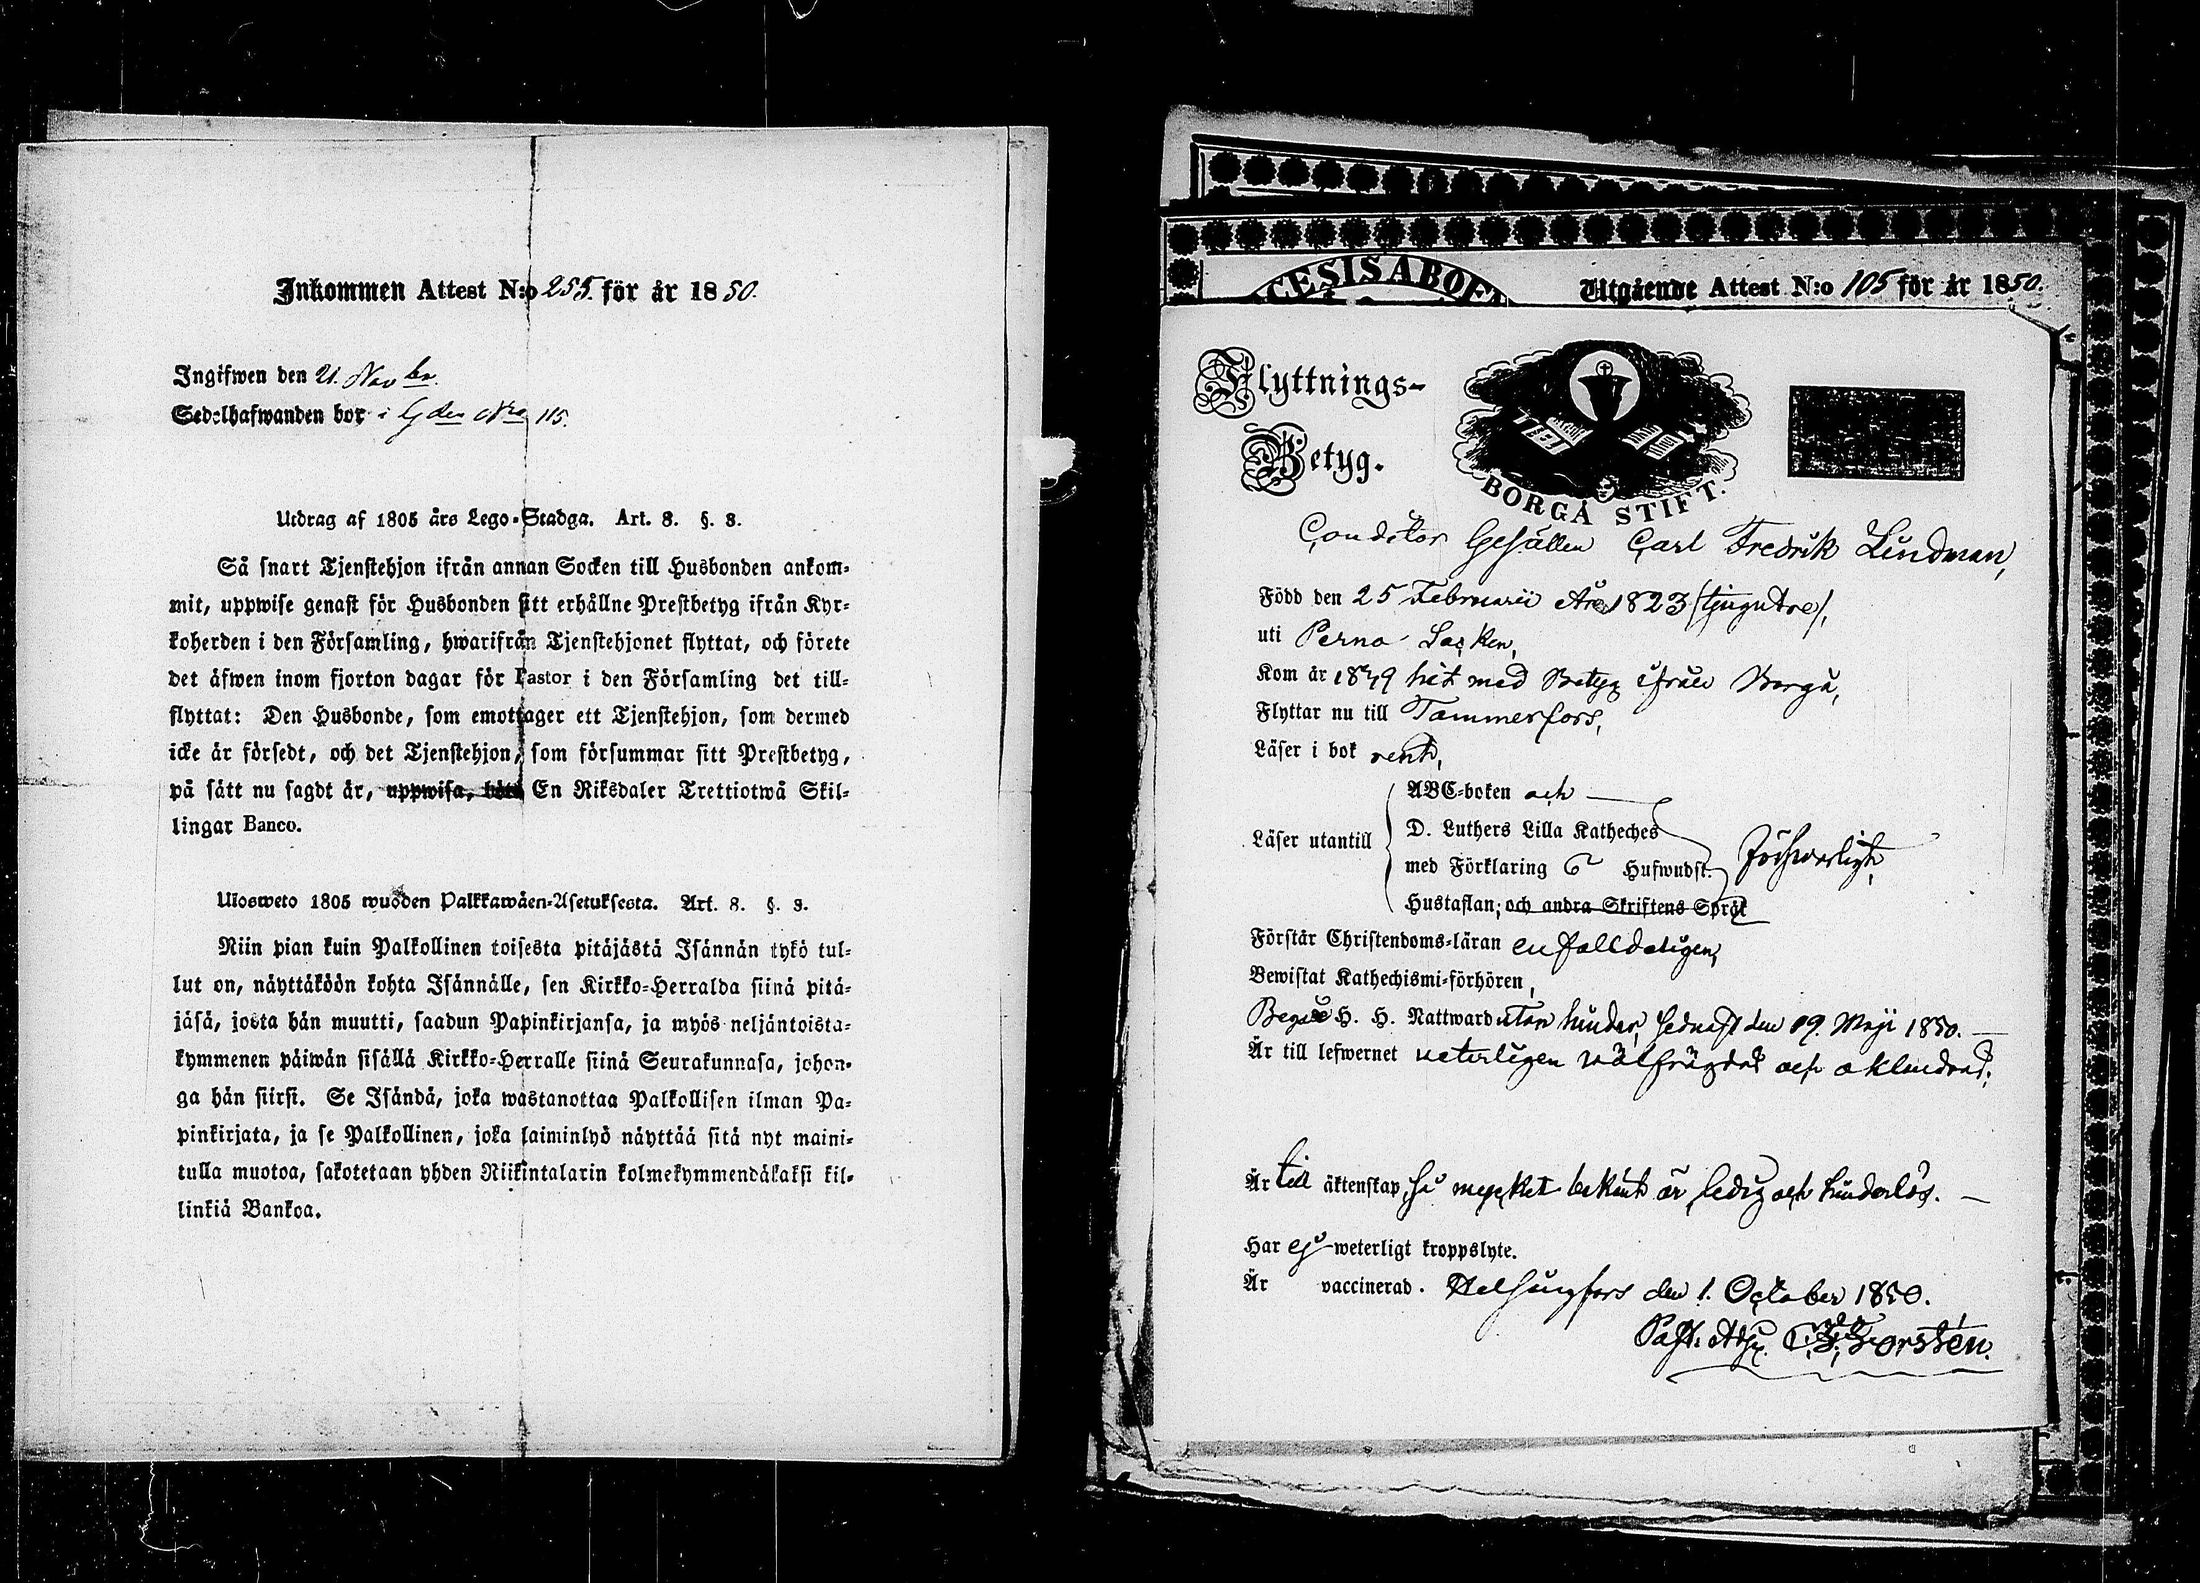 Inkommen Attest N:o 255. för år 1850.
Ingifwen den 21. Novbr.
Sedelhafwanden bor i Gden Nro 115.
Utdrag af 1805 års Lego-Stadga. Art. 8. §. 8.
Så snart Tjenstehjon ifrån annan Socken till Husbonden ankom-
mit, uppwise genast för Husbonden sitt erhållne Prestbetyg ifrån Kyr-
koherden i den Församling, hwarifrån Tjenstehjonet flyttat, och förete
det äfwen inom fjorton dagar för Pastor i den Församling det till-
flyttat: Den Husbonde, som emottager ett Tjenstehjon, som dermed
icke är försedt, och det Tjenstehjon, som försummar sitt Prestbetyg,
på sätt nu sagdt är, uppwisa, böte En Riksdaler Trettiotwå Skil-
lingar Banco.
Ulosweto 1805 wuoden Palkkawäen-Asetuksesta. Art. 8. §. 8.
Niin pian kuin Palkollinen toisesta pitäjästä Isännän tykö tul-
lut on, näyttäköön kohta Isännälle, sen Kirkko-Herralda siinä pitä-
jäsä, josta hän muutti, saadun Papinkirjansa, ja myös neljäntoista-
kymmenen päiwän sisällä Kirkko-Herralle siinä Seurakunnasa, johon-
ga hän siirsi. Se Isändä, joka wastanottaa Palkollisen ilman Pa-
pinkirjata, ja se Palkollinen, joka laiminlyö näyttää sitä nyt maini-
tulla muotoa, sakotetaan yhden Riikintalarin kolmekymmendäkaksi kil-
linkiä Bankoa.
CESIS ABOE
Utgående Attest N:o 105 för år 1850.
Flyttnings-
Betyg.
BORGÅ STIFT.
Conditor Gesällen Carl Fredrik Lindman,
Född den 25 Februarii År 1823 /tjugutre/,
uti Perno Socken,
Kom år 1849 hit med Betyg ifrån Borgå,
Flyttar nu till Tammerfors,
Läser i bok rent,
Läser utantill
ABC-boken och
D. Luthers Lilla Katheches
med Förklaring Hufwudst.
Hustaflan; och andra Skriftens Språk
Förswarligt,
Förstår Christendoms-läran enfalldeligen,
Bewistat Kathechismi-förhören,
Begår H. H. Nattward utan hinder, sednast den 19 Maji 1850.
Är till lefwernet veterligen välfrägdad och oklandrad;
Är till äktenskap, så mycket bekant är, ledig och hinderlös.
Har ej weterligt kroppslyte.
Är vaccinerad. Helsingfors den 1. October 1850.
Past. Adj. Forstén.